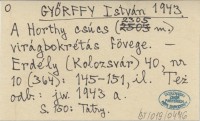 0
GYÖRFFY István 1943.
2305
A Horthy csúcs (2505 m.)
virágbokrétás fövege.
Erdély (Kolozsvár) 40, nr
10 (364): 145-151, il. Téz
odb: jw. 1943 a.
S. 150: Tatry.